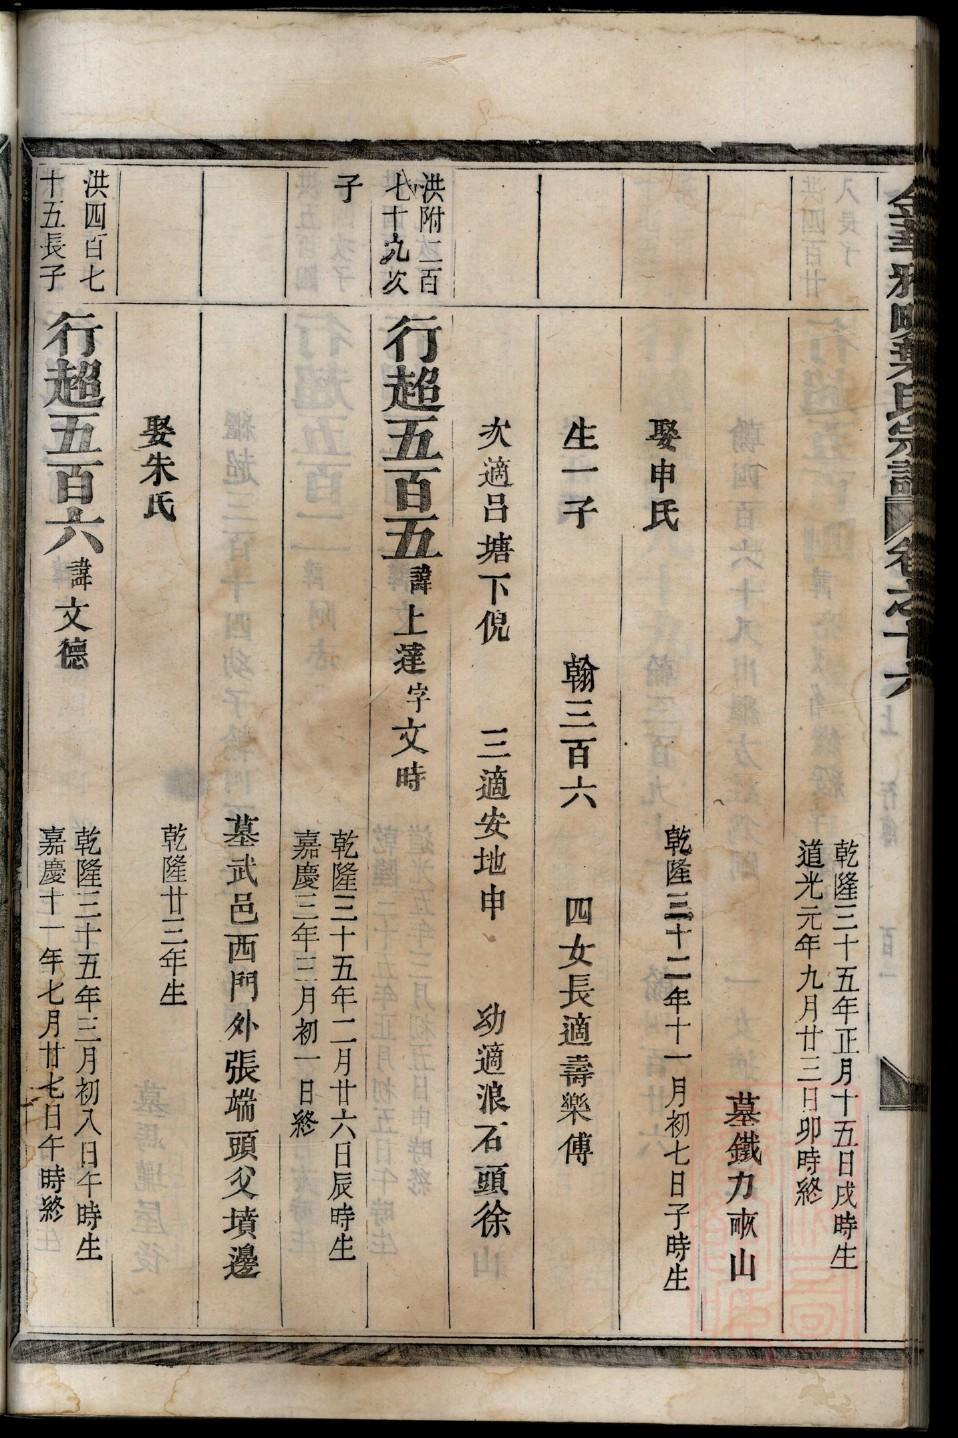 乾隆三十五年正月十五日戌時生
道光元年九月廿三日卯時終
墓鐵力畈山
娶申氏
乾隆三十二年十一月初七日子時生
生一子 翰三百六 四女長適壽樂傅
次適呂塘下倪 三適安地申 幼適浪石頭徐
洪附二百
七十九次
子
行超五百五 諱上達字文時
乾隆三十五年二月廿六日辰時生
嘉慶三年三月初一日終
墓武邑西門外張端頭父墳邊
娶朱氏
乾隆廿三年生
洪四百七
十五長子
行超五百六 諱文德
乾隆三十五年三月初入日午時生
嘉慶十一年七月廿七日午時終